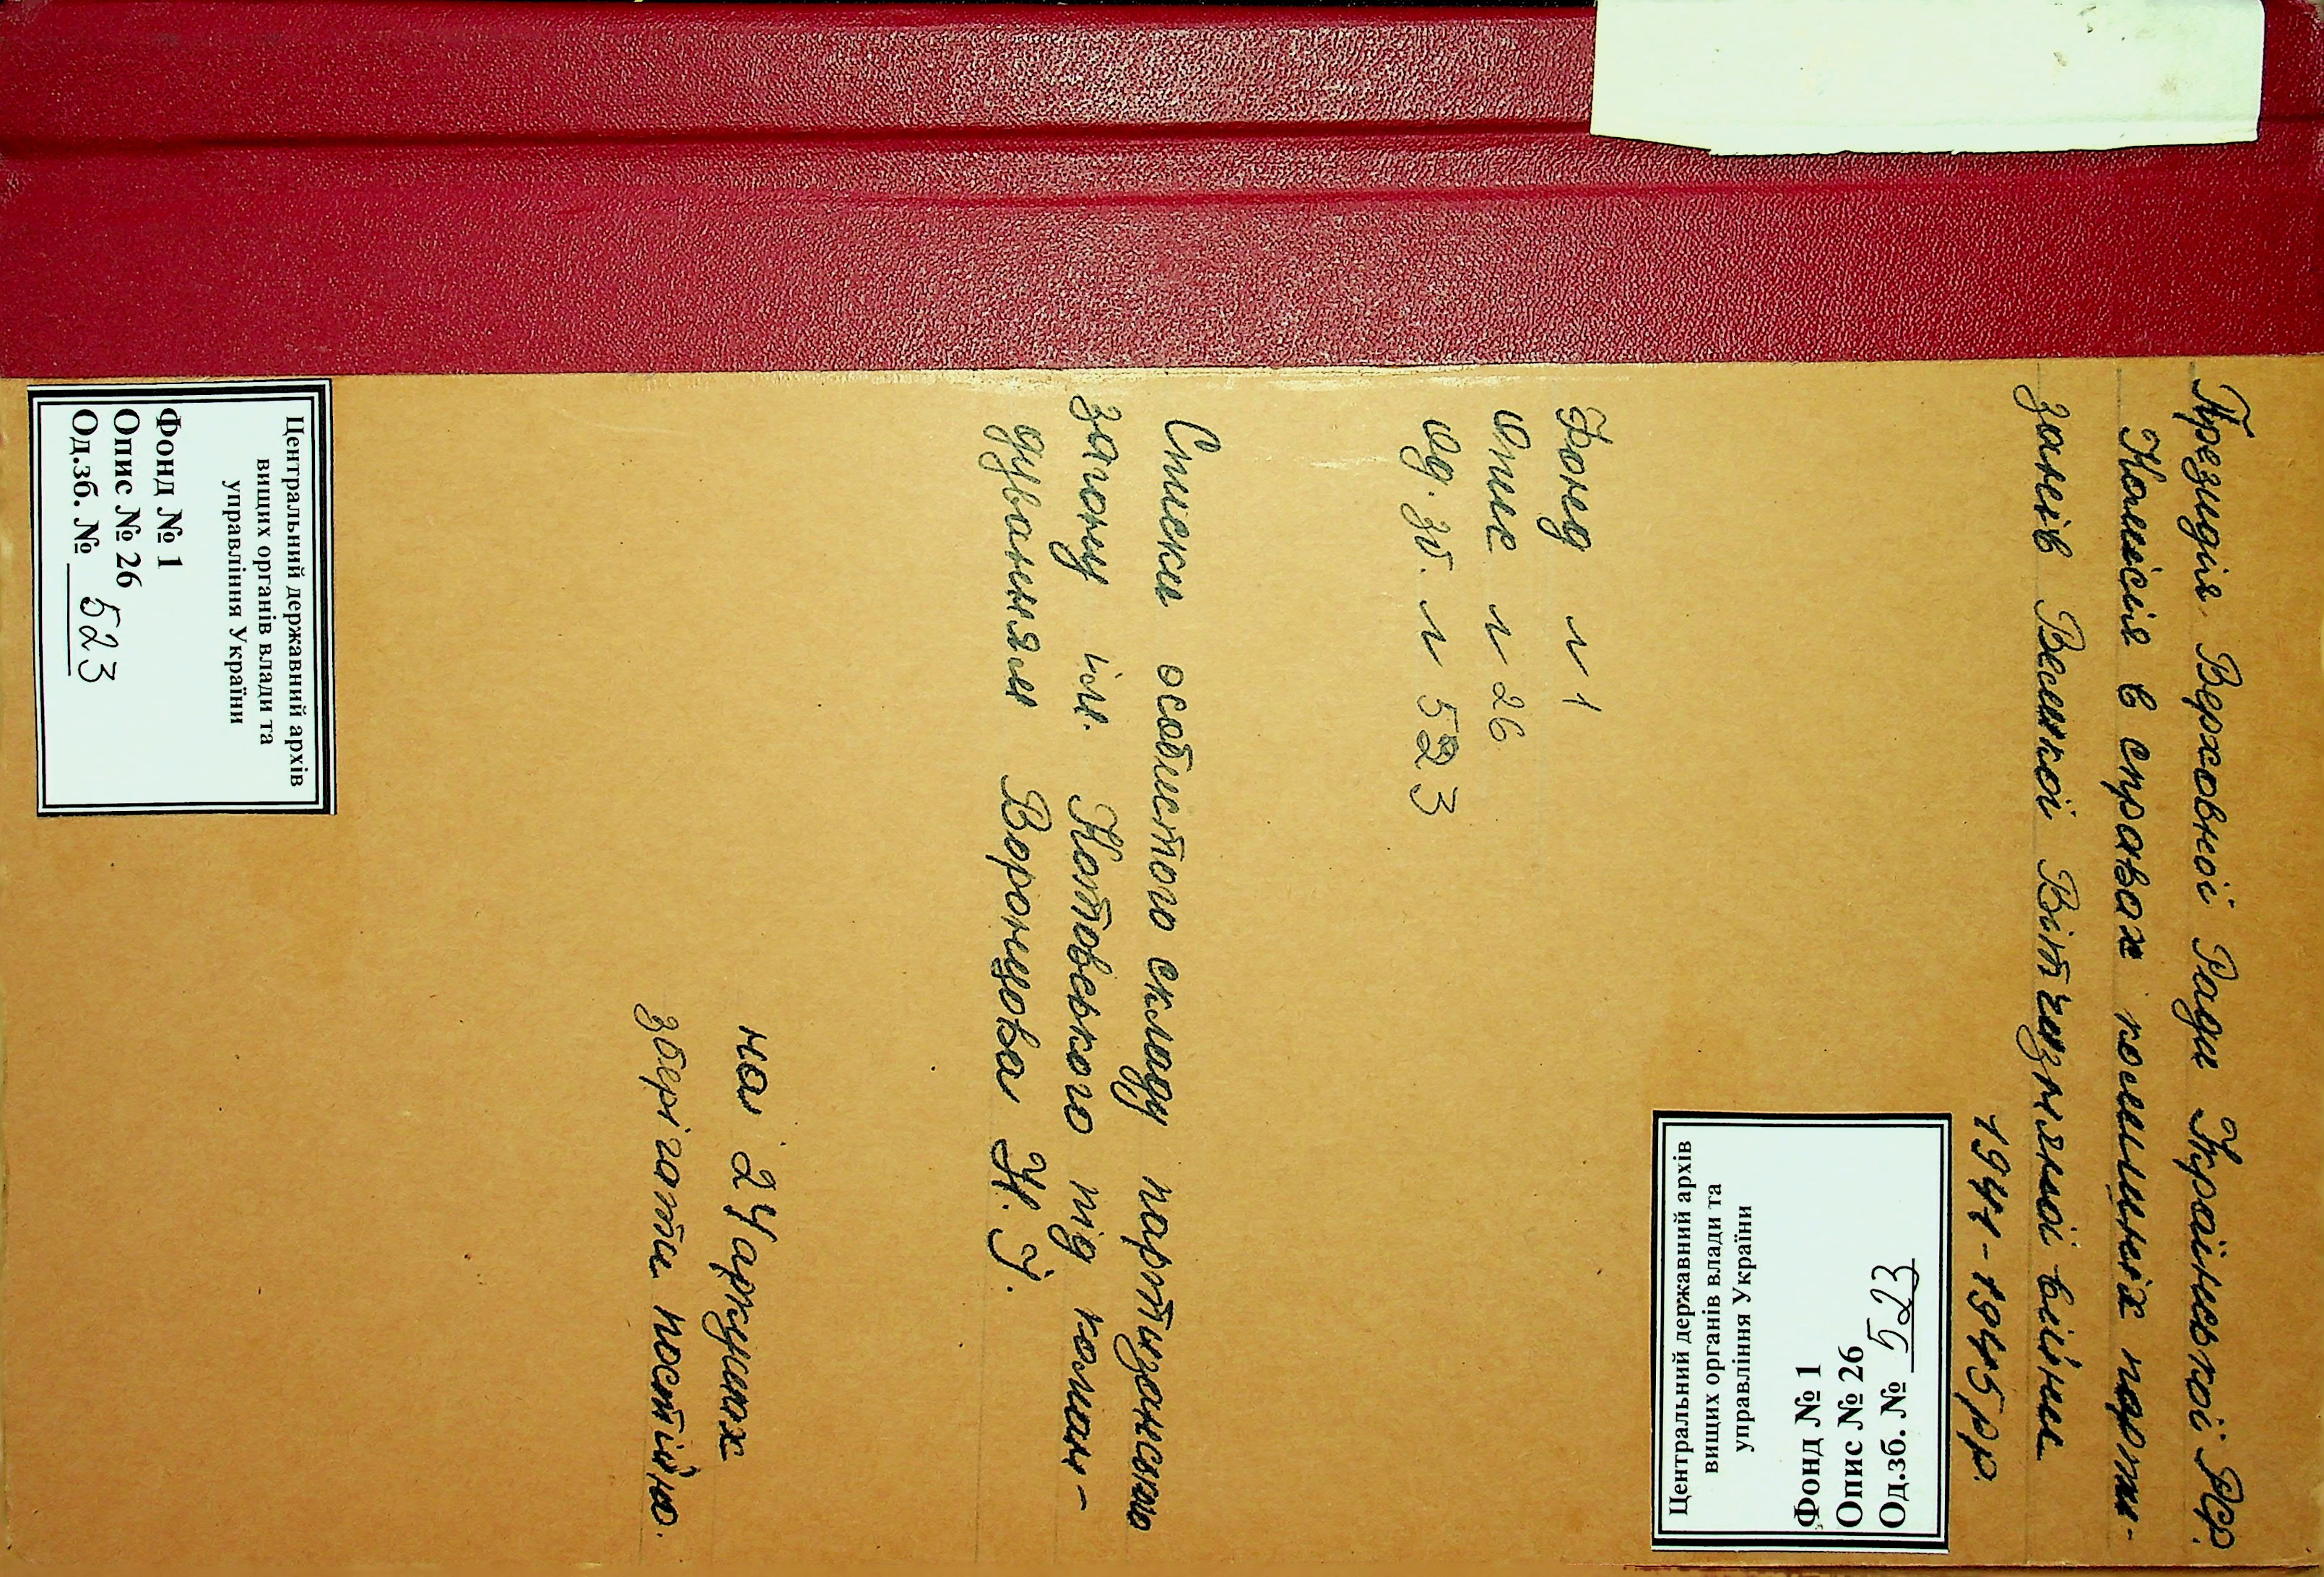 Президія Верховної Ради Української РСР.
Комісія в справах колишніх парти-
занів Великої Вітчизняної війни
1941-1945 рр.
Центральний державний архів
вищих органів влади та
управління України
Фонд № 1
Опис № 26
Од.зб. № 523
Фонд № 1
Опис № 26
Од. зб. № 523
Списки особистого складу партизанського
загону ім. Котовського під коман-
дуванням Воронцова Н. І.
на 24 аркушах
зберігати постійно.
Центральний державний архів
вищих органів влади та
управління України
Фонд № 1
Опис № 26
Од.зб. № 523